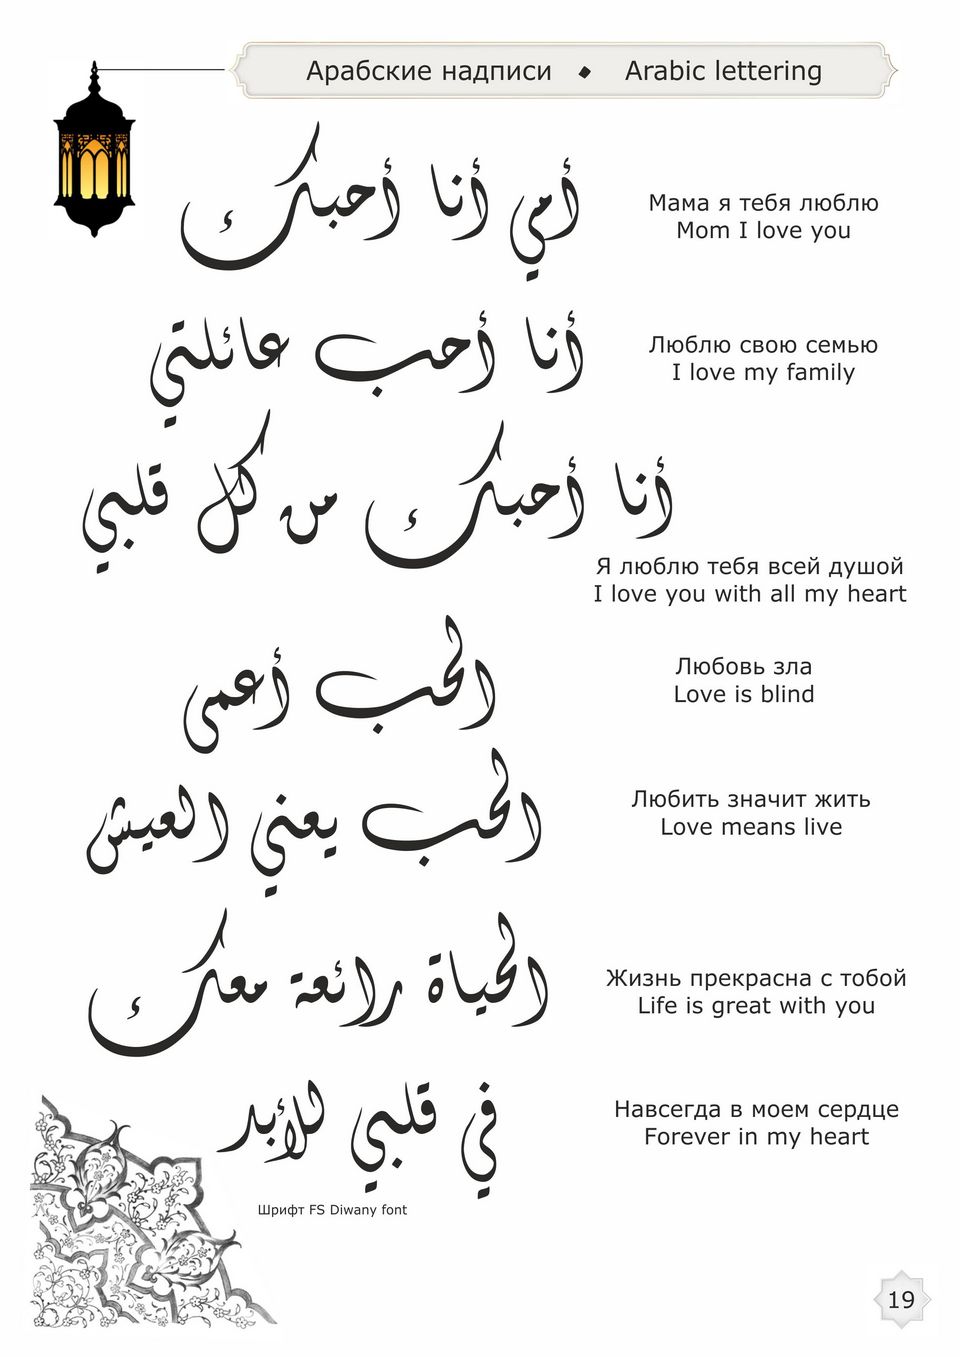 Арабские надписи ◆ Arabic lettering
أمي أنا أحبك
Мама я тебя люблю
Mom I love you
أنا أحب عائلتي
Люблю свою семью
I love my family
أنا أحبك من كل قلبي
Я люблю тебя всей душой
I love you with all my heart
الحب أعمى
Любовь зла
Love is blind
الحب يعني العيش
Любить значит жить
Love means live
الحياة رائعة معك
Жизнь прекрасна с тобой
Life is great with you
في قلبي للأبد
Навсегда в моем сердце
Forever in my heart
Шрифт FS Diwany font
19